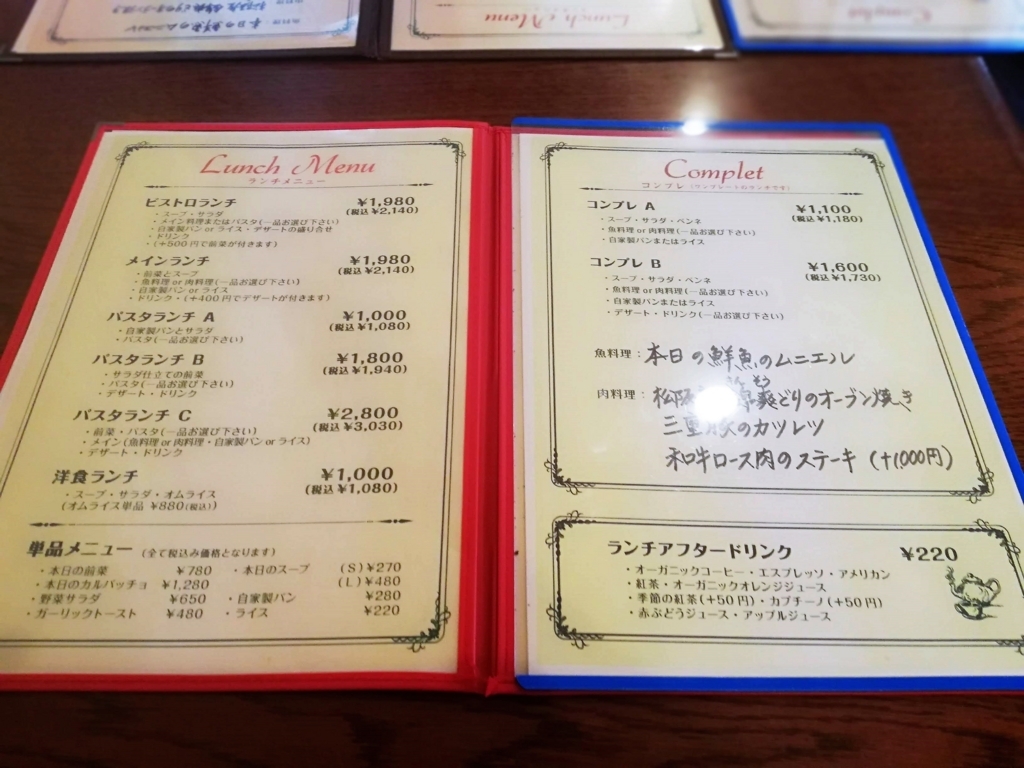 Lunch Menu
ランチメニュー
ビストロランチ ¥1,980
(税込¥2,140)
・スープ・サラダ
・メイン料理またはパスタ(一品お選び下さい)
・自家製パン or ライス・デザートの盛り合せ
・ドリンク
・(+500円で前菜が付きます)
メインランチ ¥1,980
(税込¥2,140)
・前菜とスープ
・魚料理 or 肉料理(一品お選び下さい)
・自家製パン or ライス
・ドリンク・(+400円でデザートが付きます)
パスタランチ A ¥1,000
(税込¥1,080)
・自家製パンとサラダ
・パスタ(一品お選び下さい)
パスタランチ B ¥1,800
(税込¥1,940)
・サラダ仕立ての前菜
・パスタ(一品お選び下さい)
・デザート・ドリンク
パスタランチ C ¥2,800
(税込¥3,030)
・前菜・パスタ(一品お選び下さい)
・メイン(魚料理 or 肉料理・自家製パン or ライス)
・デザート・ドリンク
洋食ランチ ¥1,000
(税込¥1,080)
・スープ・サラダ・オムライス
(オムライス単品 ¥880(税込))
単品メニュー (全て税込み価格となります)
・本日の前菜 ¥780 ・本日のスープ (S)¥270
・本日のカルパッチョ ¥1,280 (L)¥480
・野菜サラダ ¥650 ・自家製パン ¥280
・ガーリックトースト ¥480 ・ライス ¥220
Complet
コンプレ (コンプレートのランチです)
コンプレ A ¥1,100
(税込¥1,180)
・スープ・サラダ・ペンネ
・魚料理 or 肉料理(一品お選び下さい)
・自家製パンまたはライス
コンプレ B ¥1,600
(税込¥1,730)
・スープ・サラダ・ペンネ
・魚料理 or 肉料理(一品お選び下さい)
・自家製パンまたはライス
・デザート・ドリンク(一品お選び下さい)
魚料理：本日の鮮魚のムニエル
肉料理：松阪 爽どりのオーブン焼き
三重豚のカツレツ
和牛ロース肉のステーキ (+1000円)
ランチアフタードリンク ¥220
・オーガニックコーヒー・エスプレッソ・アメリカン
・紅茶・オーガニックオレンジジュース
・季節の紅茶(+50円)・カプチーノ(+50円)
・赤ぶどうジュース・アップルジュース